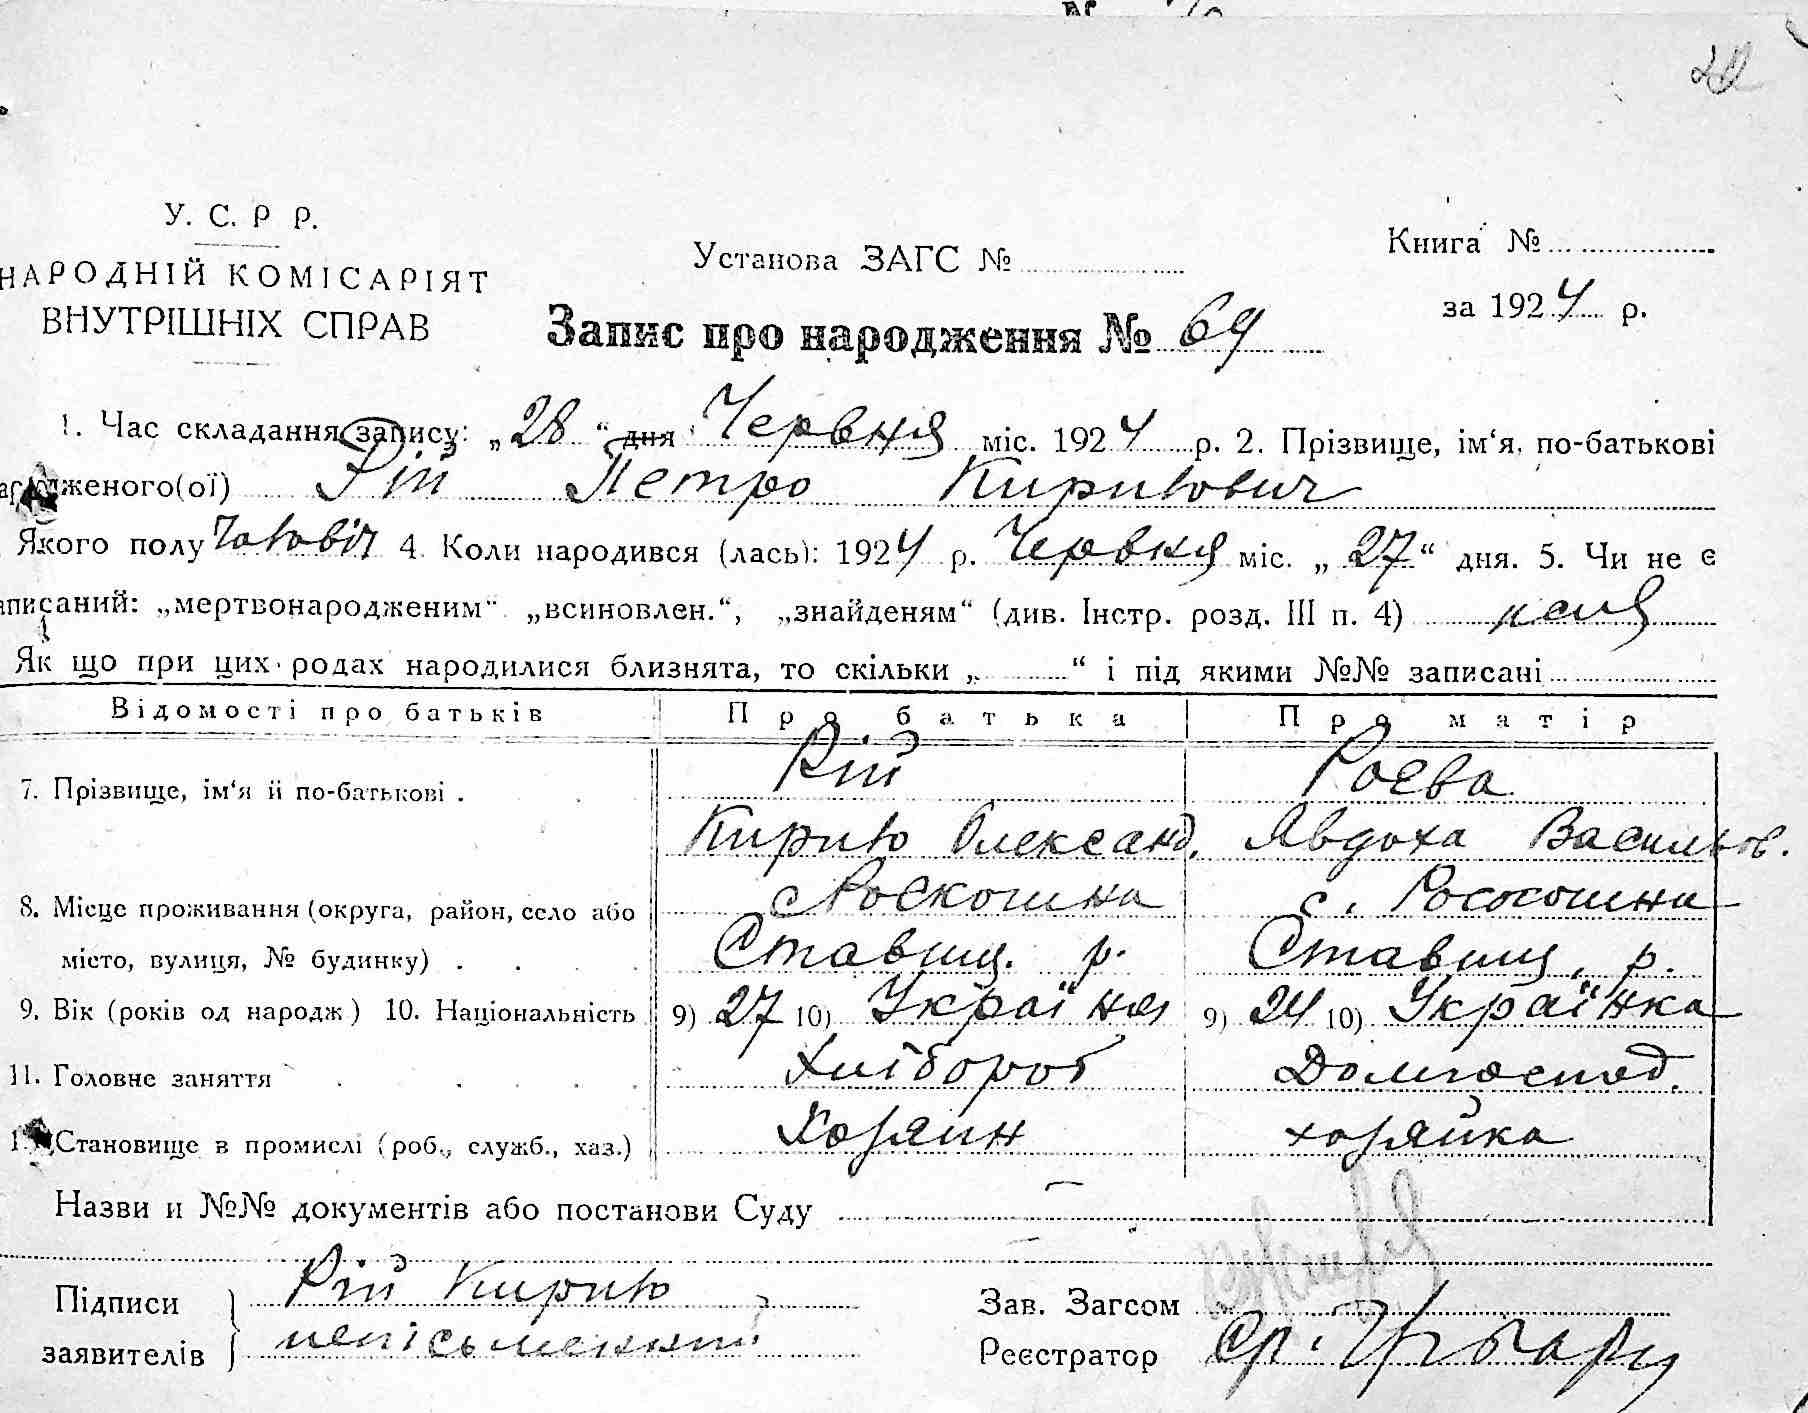 У. С. Р Р.
НАРОДНІЙ КОМІСАРІЯТ
ВНУТРІШНІХ СПРАВ
Установа ЗАГС №
Книга №
за 1924 р.
Запис про народження № 69
1. Час складання запису: „28“ дня Червня міс. 1924 р. 2. Прізвище, ім‘я, по-батькові
дженого(ої) Рій Петро Кирилович
Якого полу чоловіч 4. Коли народився (лась): 1924 р. Червня міс. „27“ дня. 5. Чи не є
записаний: „мертвонародженим“ „всиновлен.“, „знайденям“ (див. Інстр. розд. III п. 4)
Як що при цих родах народилися близнята, то скільки „ “ і під якими №№ записані
Відомості про батьків Про батька Про матір
7. Прізвище, ім‘я й по-батькові . Рій Роєва
Кирило Олександ. Явдоха Васильов.
8. Місце проживання (округа, район, село або с. Роскошна с. Роскошна
місто, вулиця, № будинку) . Ставищ. р. Ставищ. р.
9. Вік (років од народж) 10. Національність 9) 27 10) Україн 9) 24 10) Українка
11. Головне заняття Хлібороб Домгоспод.
Становище в промислі (роб., служб., хаз.) Хозяин хозяйка
Назви и №№ документів або постанови Суду
Підписи Рій Кирило Зав. Загсом
заявителів неписьменний Реєстратор